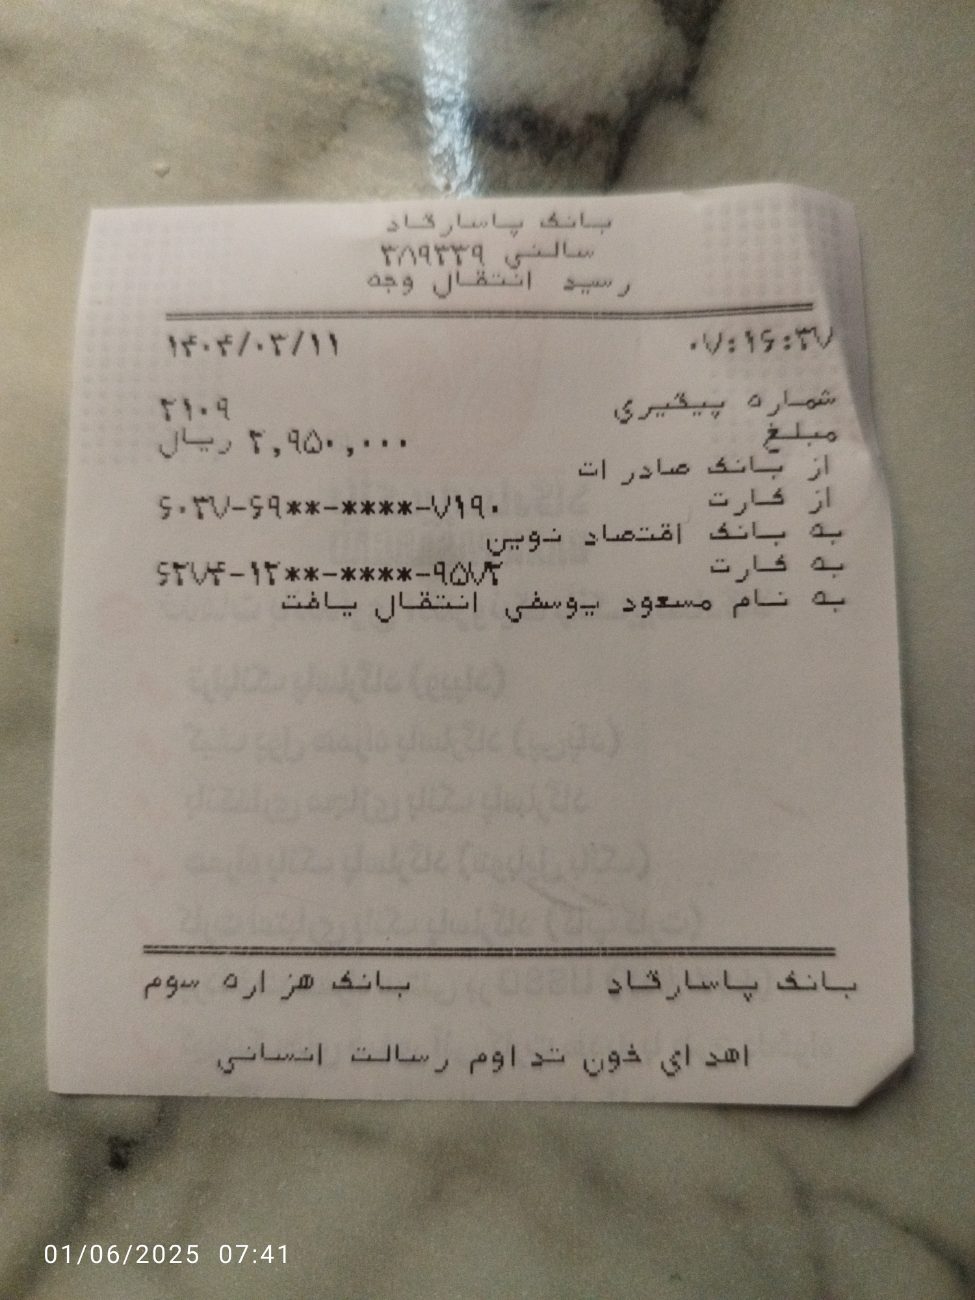 بانک پاسارگاد
سالنی ۳۸۹۳۳۹
رسید انتقال وجه
۱۴۰۴/۰۳/۱۱ ۰۷:۱۶:۳۷
شماره پیگیری ۲۱۰۹
مبلغ ۲,۹۵۰,۰۰۰ ریال
از بانک صادرات
از کارت ۶۰۳۷-۶۹**-****-۷۱۹۰
به بانک اقتصاد نوین
به کارت ۶۲۷۴-۱۲**-****-۹۵۷۲
به نام مسعود یوسفی انتقال یافت
بانک پاسارگاد بانک هزاره سوم
اهدای خون تداوم رسالت انسانی
01/06/2025 07:41